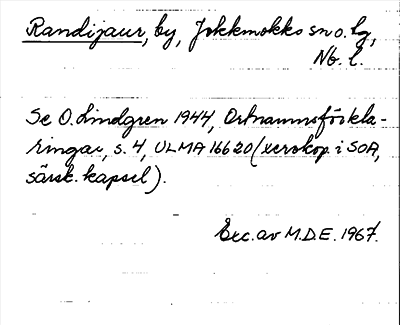 Randijaur, by, Jokkmokks sn o. lg,
Nb. l.
Se O. Lindgren 1944, Ortnamnsförkla-
ringar, s. 4, ULMA 16620 (xerokop. i SOA,
särsk. kapsel).
Exc. av M.D.E. 1967.